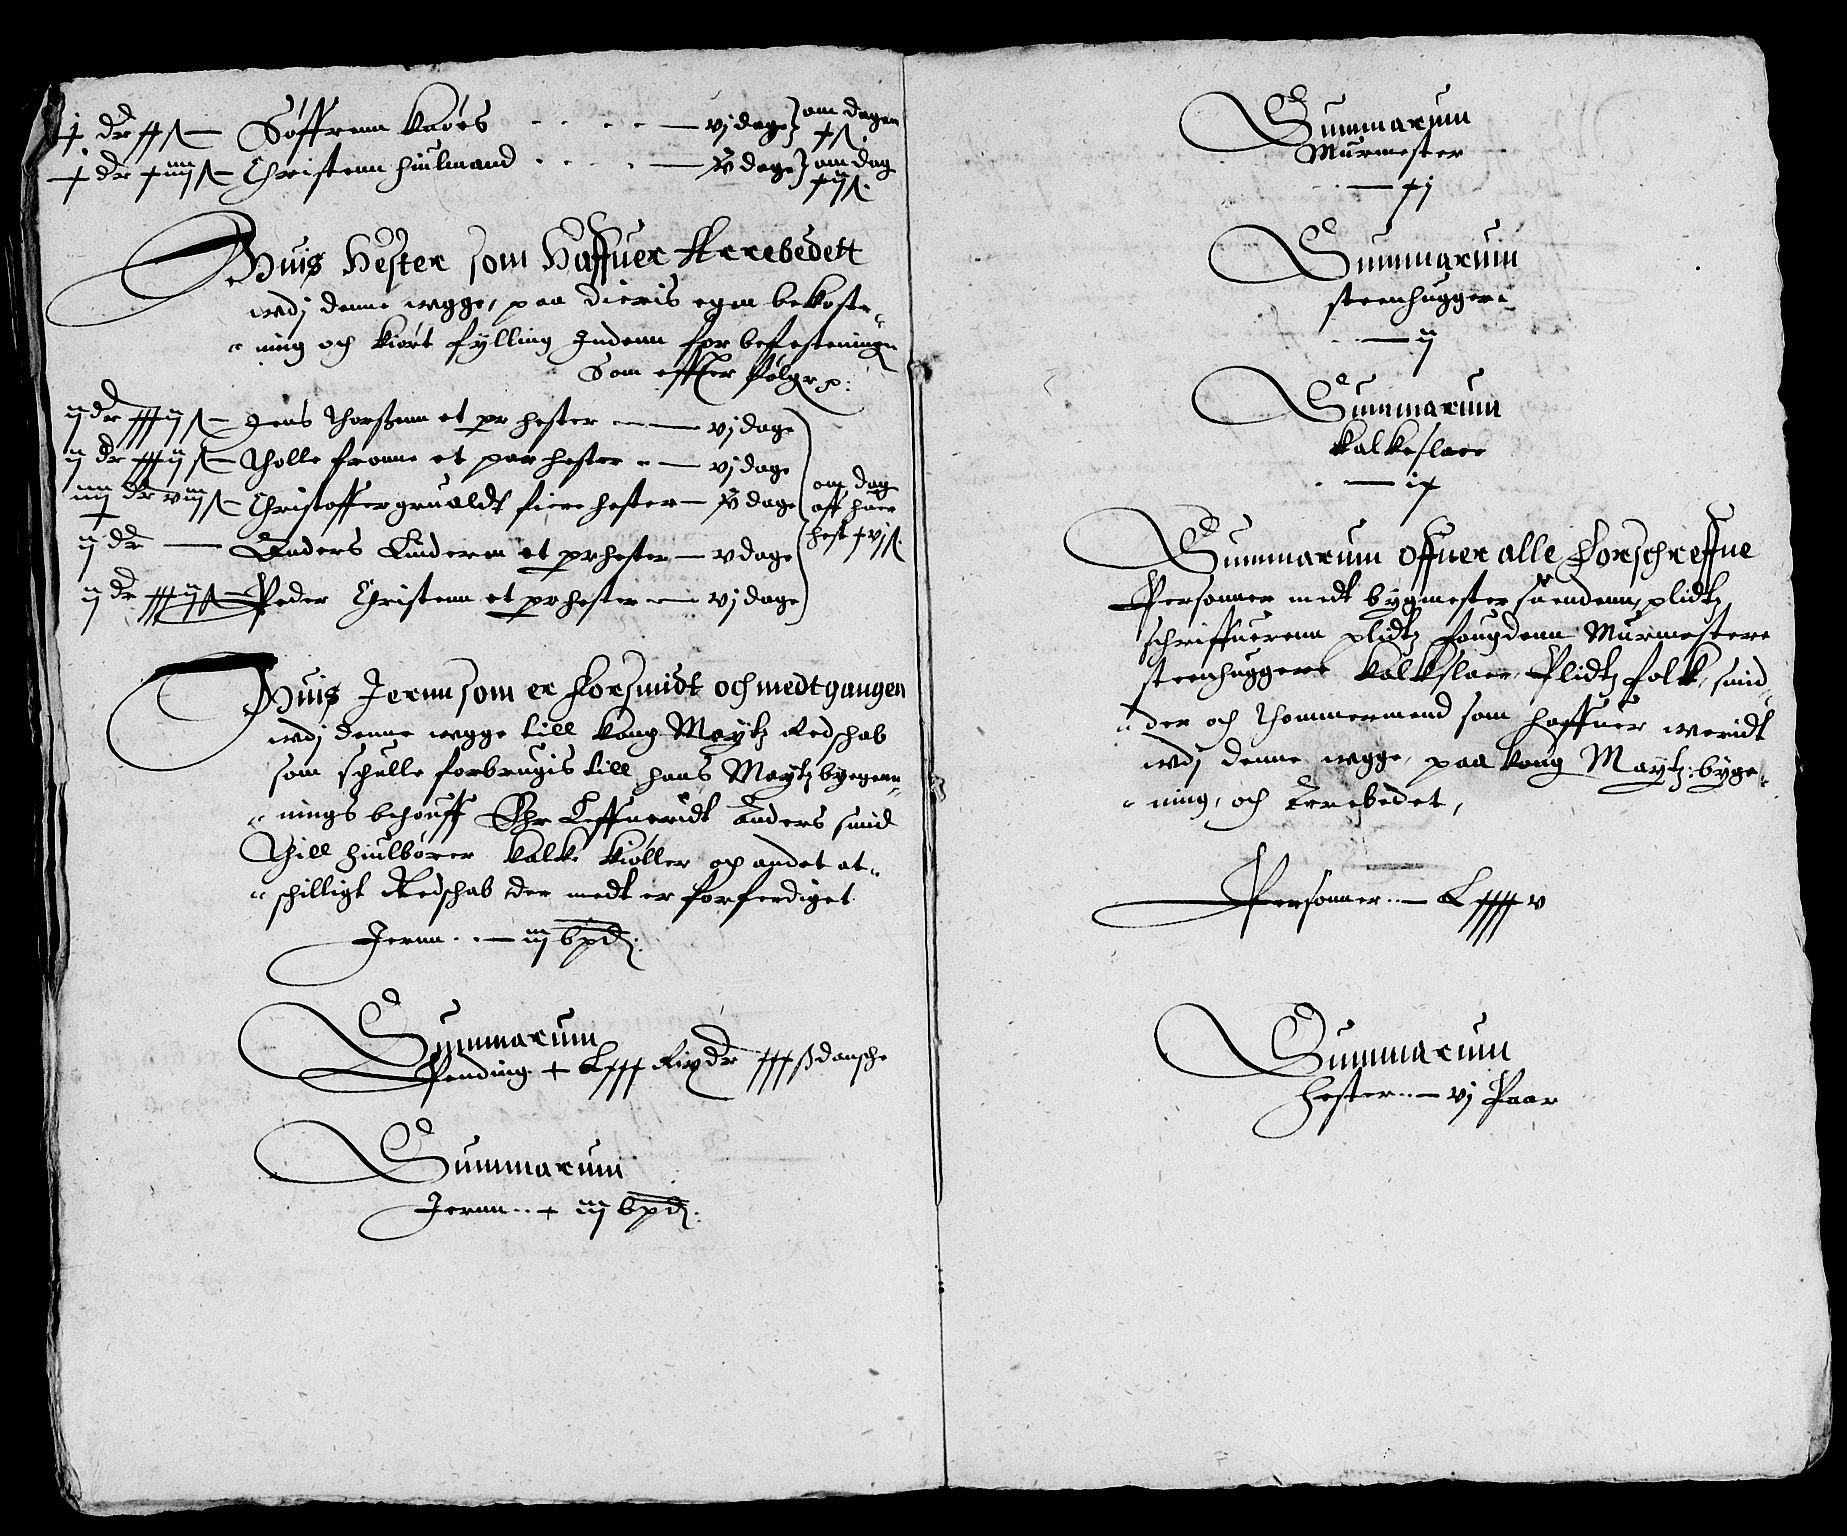 j dr xx ß — Søffrenn kaaes — vj dage } om dagen
x ß
j dr xiiij ß — Christenn hiulmand — dage } om dag
xij ß
Huis Hester som Haffuer Arrebedett
wdj denne wgge, paa dieris egen bekoste-
ning och kiørt fylling Indenn for befesteningen
Som effter følger
ij dr xxxij ß — Jens Thorßenn et par hester — vj dage
ij dr xxxij ß — Tholle fronne et par hester — vj dage
iiij dr ß — Christoffer grualdt fiere hester — dage
om dag
aff huer
hest xvj ß
ij dr — Anders Lunderen et par hester — v dage
ij dr xxxij ß — Peder Christenn et par hester — vj dage
Huis Jernn som er Forsmidt och medt gangen
wdj denne wgge till kong Maytz Redschab
som schulle forbrugis till hans Maytz bygen-
nings behouff Ehr Leffueridt Anders smid
Thill hiulbører kalke kiøller och andet at-
schilligt Redschab der medt er forferdiget
Jernn — iiij bpd
Summarum
Pending — Lxxx Rixdr xxx ß dansche
Summarum
Jernn — iiij bpd
Summarum
Murmester
— xj
Summarum
steenhuggere
— ij
Summarum
kalkeslaer
— ix
Summarum offuer alle Forschreffne
Personner medt bygmester suendenn, plidtz
schriffuerenn plidtz fougdenn Murmestere
steenhuggere kalkslaer, Plidtz folk, smid-
der och Thommermend som haffuer weridt
wdj denne wgge, paa kong Maytz: byge-
ning, och Arrebedet,
Personner — Lxxxxv
Summarum
Hester — vj Paar